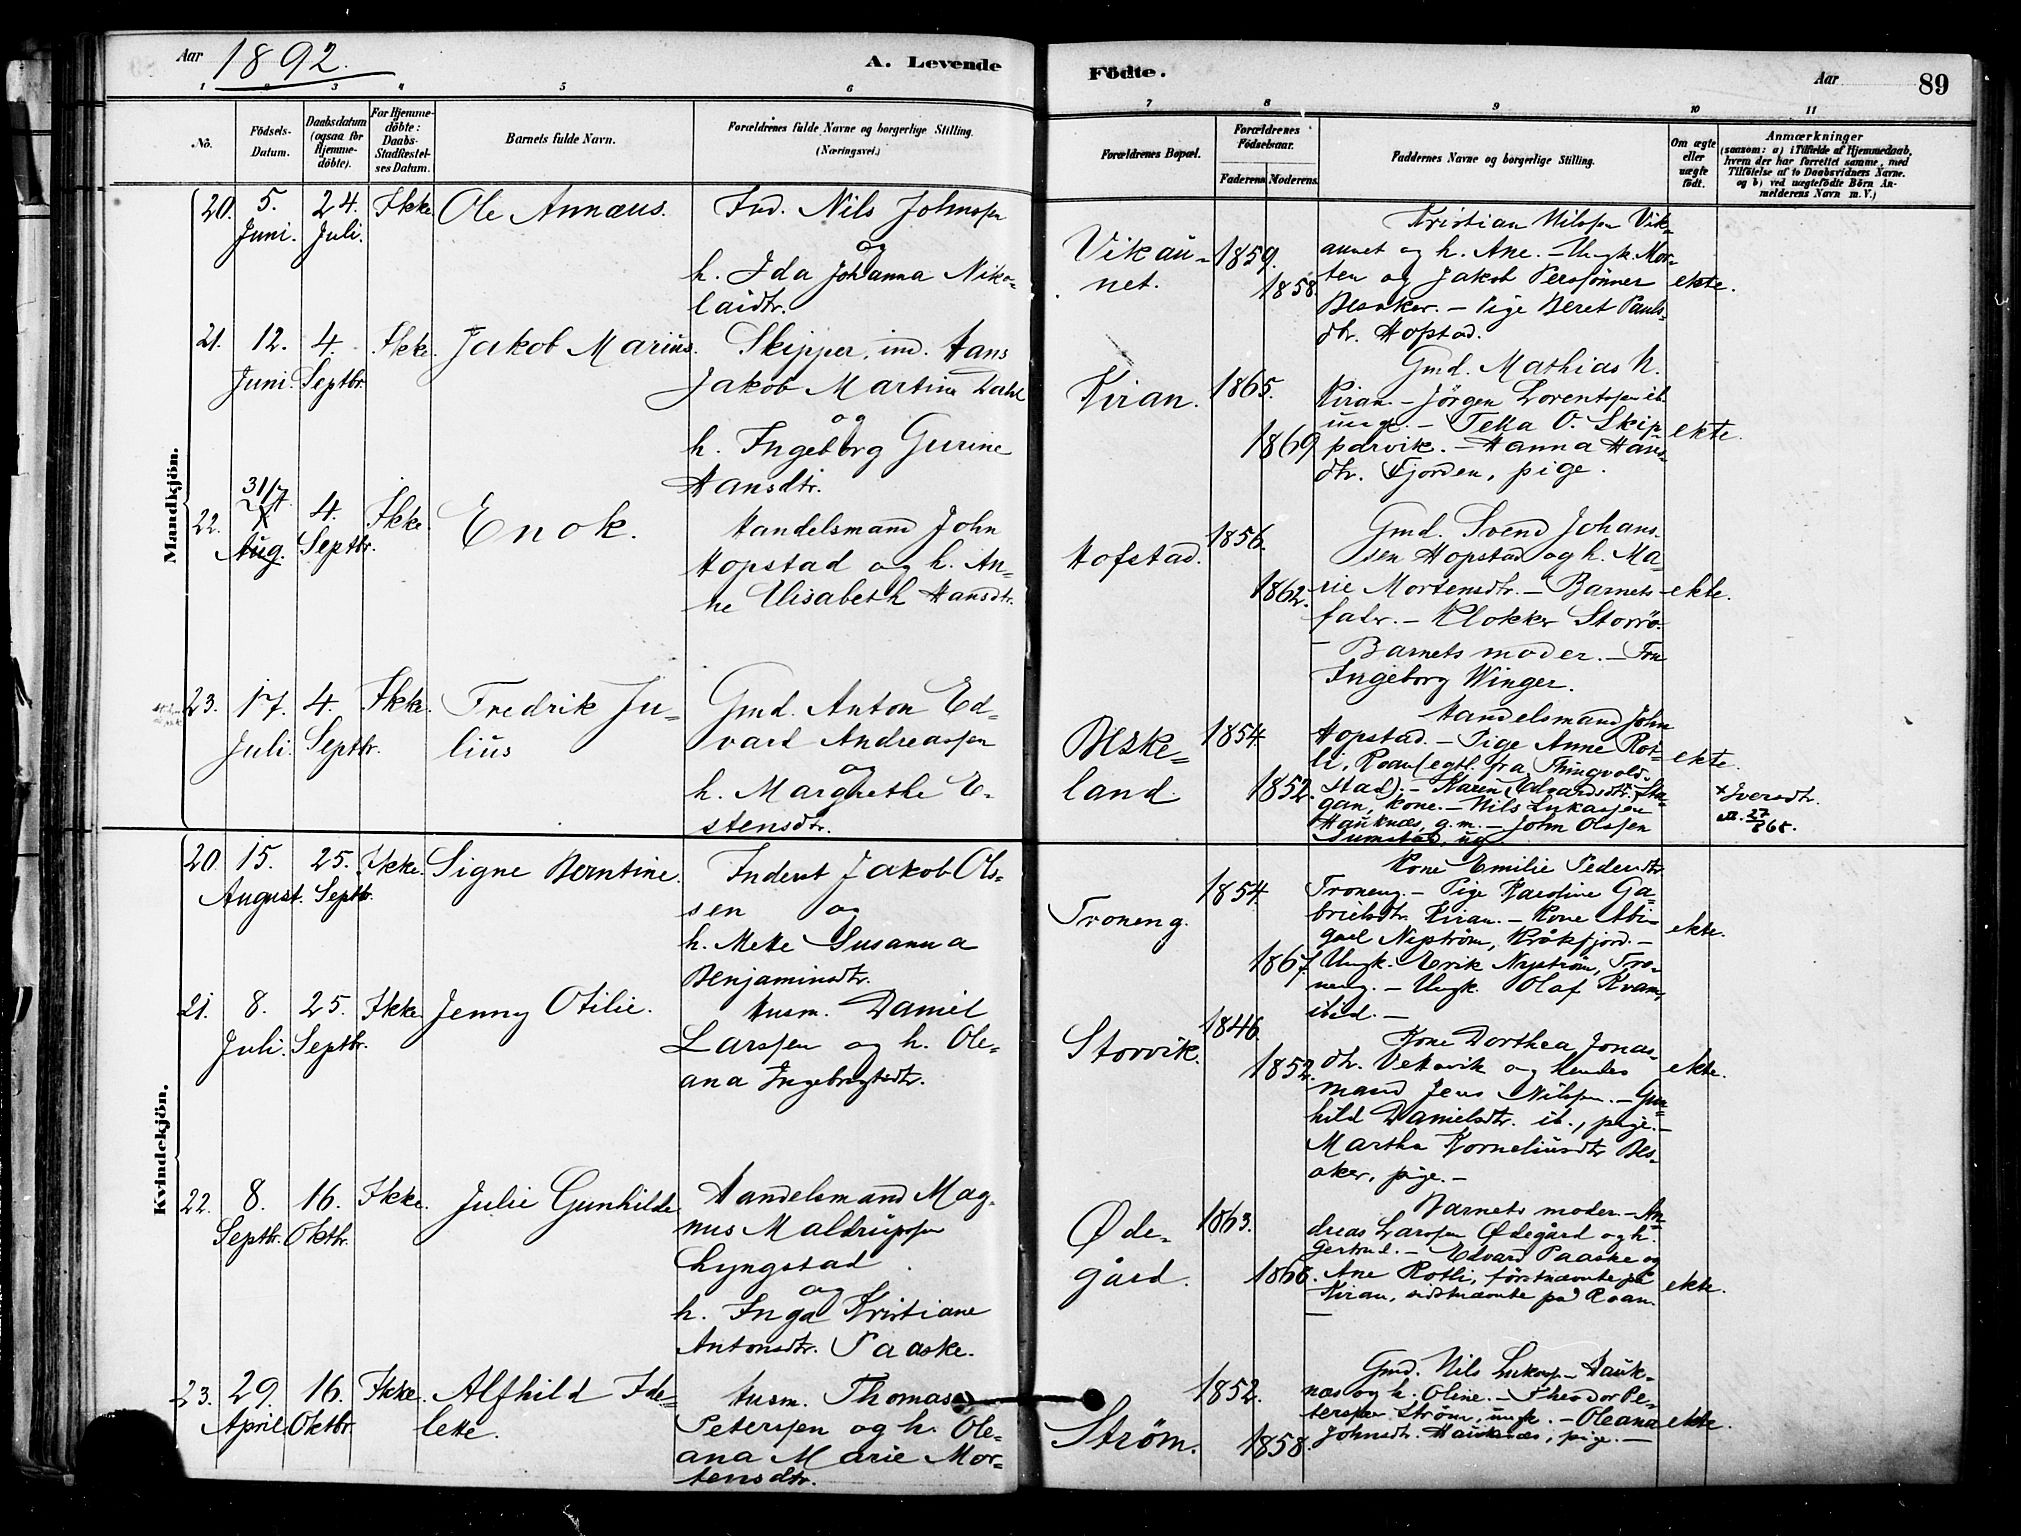 Aar 1892.
A. Levende
Födte.
Aar
89
1 2 3 4 5 6 7 8 9 10 11
No.
Födsels-
Datum.
Daabsdatum
(ogsaa for
Hjemme-
döbte).
For Hjemme-
döbte:
Daabs-
Stadfæstel-
ses Datum.
Barnets fulde Navn.
Forældrenes fulde Navne og borgerlige Stilling.
(Næringsvei.)
Forældrenes Bopæl.
Forældrenes
Födselsaar.
Faderens.
Moderens.
Faddernes Navne og borgerlige Stilling.
Om ægte
eller
uægte
födt.
Anmærkninger
(saasom: a) i Tilfælde af Hjemmedaab,
hvem der har forrettet samme, med
Tilföielse af to Daabsvidners Navne.
og b) ved uægtefödte Börn An-
melderens Navn m.V.)
Mandkjön.
20.
5.
Juni.
24.
Juli.
Ikke
Ole Annæus.
Ind. Nils Johnsen
og
h. Ida Johanna Niko-
laidtr.
Vikau-
net.
1859.
1858.
Kristian Nilssen Vik-
aunet og h. Ane. - Ungk. Mor-
ten og Jakob Perssønner
Besaker. - Pige Beret Pauls-
dtr. Hopstad.
ekte.
21.
12.
Juni.
4.
Septbr.
Ikke.
Jakob Marius.
Skipper, ind. Hans
Jakob Martin Dahl
og
h. Ingeborg Gurine
Hansdtr.
Kiran.
1865.
1869
Gmd. Mathias N.
Kiran - Jörgen Lorentssen ib.
ungk. - Tella O. Skip-
parvik. - Hanna Hans-
dtr. Fjorden, pige.
ekte.
22.
31/7
Aug.
4.
Septbr.
Ikke
Enok.
Handelsmand John
Hopstad og h. An-
ne Elisabeth Hansdtr.
Hofstad.
1856.
1862.
Gmd. Svend Johans-
sen Hopstad og h. Ma-
rie Mortensdtr. - Barnets
fader. - Klokker Storrö.
- Barnets moder. - Fru
Ingeborg Winger.
ekte.
23.
17.
Juli.
4.
Septbr.
Ikke.
Fredrik Ju-
lius
Gmd. Anton Ed-
vard Andreassen
og
h. Margrethe E-
stensdtr.
Beske-
land.
1854.
1852.
Handelsmand John
Hopstad. - Pige Anne Rot-
li, Roan (egtl. fra Thingvold-
stad). - Karen Edvardsdtr. Sta-
gan, kone. - Nils Lukassen
Hauknæs, g.m. - John Olssen
Sumstad, ug
ekte.
x Iversdtr.
Kvindekjön.
20.
15.
August.
25.
Septb.
Ikke.
Signe Berntine.
Inderst Jakob Ols-
sen og
h. Mette Susanna
Benjaminsdtr.
Troneng.
1854.
1867.
Kone Emilie Pedersdtr.
Troneng. - Pige Karoline Ga-
brielsdtr. Kiran. - Kone Abi-
gael Nyström, Kråkfjord. -
Ungk. Erik Nyström, Tro-
neng. - Ungk. Olaf Kvam,
ibid. -
ekte.
21.
8.
Juli.
25.
Septbr.
Ikke
Jenny Otilie.
Husm. Daniel
Larssen og h. Ole-
ana Ingebrigtsdtr.
Storvik.
1846.
1852.
Kone Dorthea Jonas-
dtr. Vekavik og hendes
mand Jens Nilssen. - Gun-
hild Danielsdtr. ib., pige. -
Martha Korneliusdtr Bes-
aker, pige. -
ekte.
22.
8.
Septbr.
16.
Oktbr.
Ikke.
Julie Gunhilde
Handelsmand Mag-
nus Maldrupssen
Lyngstad
og
h. Inga Kristiane
Antonsdtr. Paaske.
Øde-
gård.
1863.
1868.
Barnets moder. - An-
dreas Larssen Ødegård og h.
Gertrud. - Edvard Paaske og
Ane Rotli, förstnævnte på
Kiran, sidstnævnte på Roan.
-
ekte.
23.
29.
April.
16.
Oktbr.
Ikke.
Alfhild Ide-
lette.
Husm. Thomas
Peterssen og h. Ole-
ana Marie Mor-
tensdtr.
Strøm.
1852.
1858.
Gmd. Nils Lukass. Hauk-
næs og h. Oline. - Theodor Pe-
terssen Ström, ungk. - Oleana
Johnsdtr. Hauknæs, pige. -
ekte.